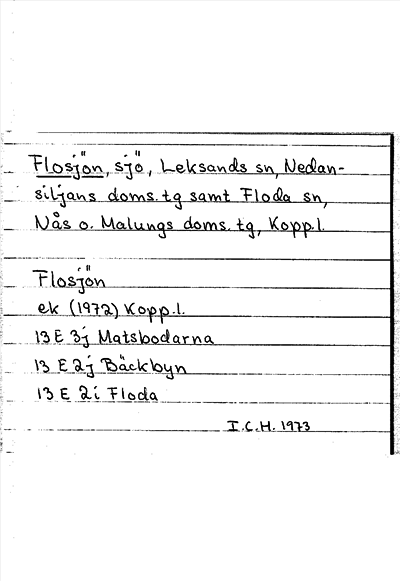 Flosjön, sjö, Leksands sn, Nedan-
siljans doms. tg samt Floda sn,
Nås o. Malungs doms. tg, Kopp. l.
Flosjön
ek (1972) Kopp. l.
13 E 3j Matsbodarna
13 E 2j Bäckbyn
13 E 2i Floda
I.C.H. 1973